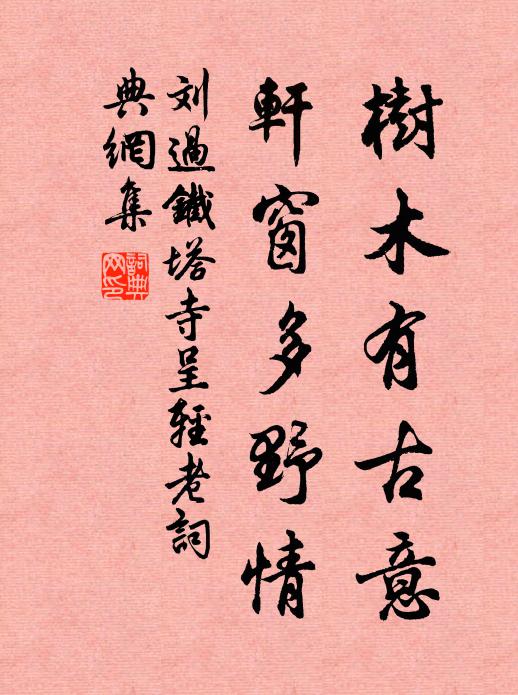 樹木有古意
軒窗多野情
刘過鐵塔寺呈輕老詞
典網集
詞典网印